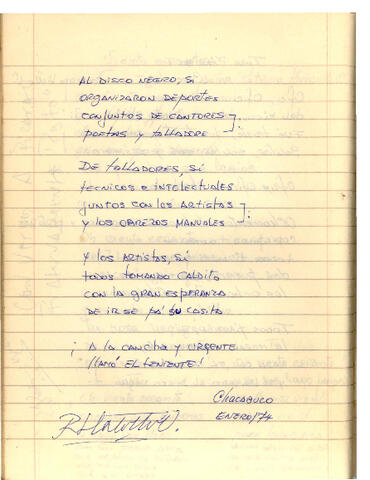 AL DISCO NEGRO, SI
ORGANIZARON DEPORTES
CONJUNTOS DE CANTORES
POETAS Y TALLADORE
DE TALLADORES, SÍ
TECNICOS E INTELECTUALES
JUNTOS CON LOS ARTISTAS
Y LOS OBREROS MANUALES
Y LOS ARTISTAS, SÍ
TODOS TOMANDO CALDITO
CON LA GRAN ESPERANZA
DE IRSE PA' SU CASITA
¡A LA CANCHA Y URGENTE
LLAMÓ EL TENIENTE!
CHACABUCO
ENERO/74